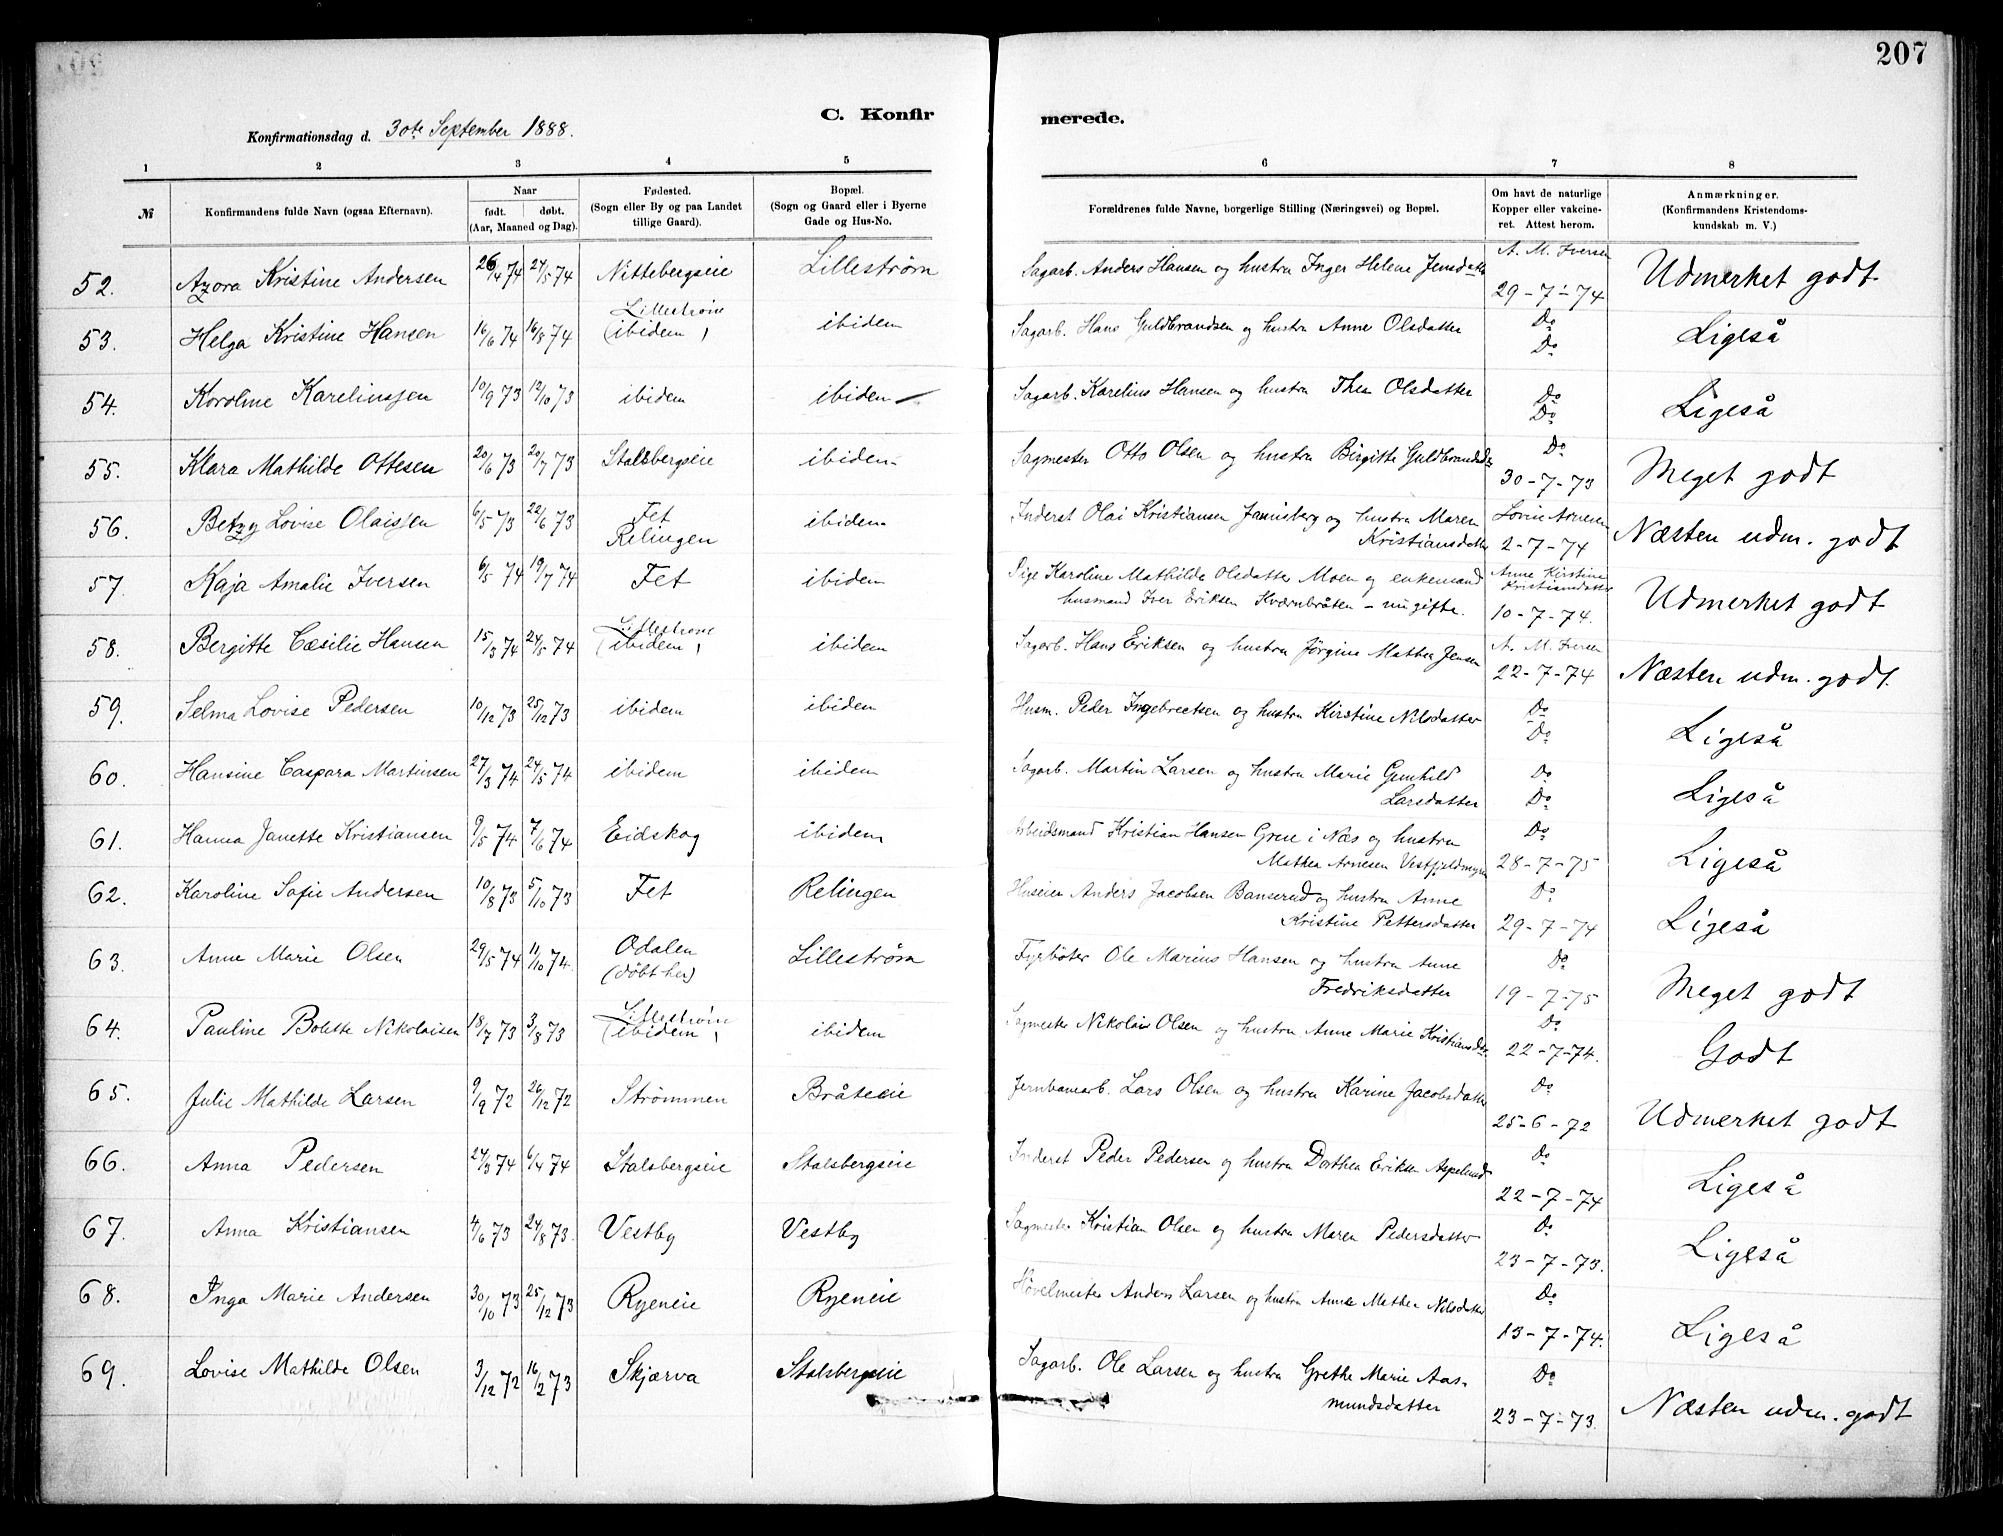 207
C. Konfirmerede.
Konfirmationsdag d. 30te September 1888.
1 2 3 4 5 6 7 8
№ Konfirmandens fulde Navn (ogsaa Efternavn). Naar født. døbt. (Aar, Maaned og Dag). Fødested. (Sogn eller By og paa Landet tillige Gaard). Bopæl. (Sogn og Gaard eller i Byerne Gade og Hus-No. Forældrenes fulde Navne, borgerlige Stilling (Næringsvei) og Bopæl. Om havt de naturlige Kopper eller vakcineret. Attest herom. Anmærkninger. (Konfirmandens Kristendomskundskab m. V.)
52. Azora Kristine Andersen 26/4 74 24/5 74 Nittebergseie Lillestrøm Sagarb. Anders Hansen og hustru Inger Helene Jensdatter A. M. Iversen 29-7-74 Udmerket godt
53. Helga Kristine Hansen 16/6 74 16/8 74 Lillestrøm (ibidem) ibidem Sagarb. Hans Guldbrandsen og hustru Anne Olsdatter Do Do Ligeså
54. Karoline Kareliussen 10/9 73 12/10 73 ibidem ibidem Sagarb. Karelius Hansen og hustru Thea Olsdatter Do Do Ligeså
55. Klara Mathilde Ottesen 20/6 73 20/7 73 Stalsbergseie ibidem Sagmester Otto Olsen og hustru Birgitte Guldbrandsdr Do 30-7-73 Meget godt
56. Betzy Lovise Olaisen 6/5 73 22/6 73 Fet Relingen ibidem Inderst Olai Kristiansen og hustru Maren Kristiansdatter Lovise Arnesen 2-7-74 Næsten udm. godt
57. Kaja Amalie Iversen 6/5 74 19/7 74 Fet ibidem Pige Karoline Mathilde Olsdatter Moen og enkemand husmand Iver Eriksen Kværnbråten - nu gifte. Anne Kirstine Kristiansdatter 10-7-74. Udmerket godt
58. Bergitte Cæsilie Hansen 15/3 74 24/5 74 Lillestrøm (ibidem) ibidem Sagarb. Hans Eriksen og hustru Jørgine Mathea Jensen A. M. Iversen 22-7-74 Næsten udm. godt.
59. Selma Lovise Pedersen 10/12 73 25/12 73 ibidem ibidem Husm. Peder Ingebretsen og hustru Kirstine Nilsdatter Do Do Ligeså
60. Hansine Caspara Martinsen 27/3 74 24/5 74 ibidem ibidem Sagarb. Martin Larsen og hustru Marie Gunhild Larsdatter Do Do Ligeså
61. Hanna Janette Kristiansen 9/5 74 7/6 74 Eidskog ibidem Arbeidsmand Kristian Hansen Grue i Næs og hustru Mathea Arnesen Do 28-7-75 Ligeså
62. Karoline Sofie Andersen 10/8 73 5/10 73 Fet Relingen Huseier Anders Jacobsen Banserud og hustru Anne Kristine Pettersdatter Do 29-7-74 Ligeså
63. Anne Marie Olsen 29/5 74 11/10 74. Odalen (døbt her) Lillestrøm Fyrbøter Ole Marius Hansen og hustru Anne Fredriksdatter Do 19-7-75 Meget godt
64. Pauline Bolette Nikolaisen 18/7 73 3/8 73 Lillestrøm (ibidem) ibidem Sagmester Nikolai Olsen og hustru Anne Marie Kristiansdtr. Do 22-7-74. Godt
65. Julie Mathilde Larsen 9/9 72 26/12 72 Strømmen Bråteeie Jernbanearb. Lars Olsen og hustru Karine Jacobsdatter Do 25-6-72 Udmerket godt
66. Anna Pedersen 24/3 74 6/4 74 Stalsbergseie Stalsbergseie Inderst Peder Pedersen og hustru Dorthea Eriksen Aspelund Do 22-7-74 Ligeså
67. Anna Kristiansen 4/6 73 24/8 73. Vestby Vestby Sagmester Kristian Olsen og hustru Maren Pedersdatter Do 23-7-73. Ligeså
68. Inga Marie Andersen 30/10 73 25/12 73 Ryeneie Ryeneie Høvelmester Anders Larsen og hustru Anne Mathea Nilsdatter Do 13-7-74. Ligeså
69. Lovise Mathilde Olsen 3/12 72 16/2 73 Skjærva Stalsbergseie Sagarb. Ole Larsen og hustru Grethe Marie Aasmundsdatter Do 23-7-73. Næsten udm. godt